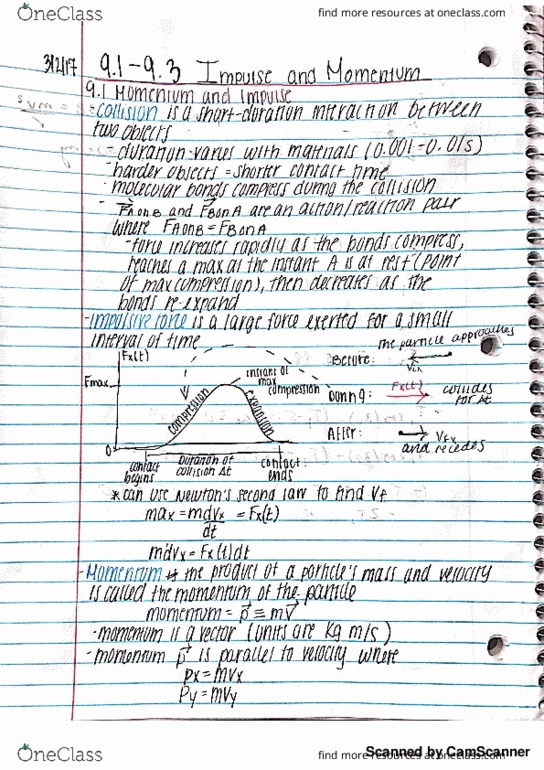 OneClass
find more resources at oneclass.com
3/2/17 9.1-9.3 Impulse and Momentum
9.1 Momentum and Impulse
-collision is a short-duration interaction between
two objects
-duration varies with materials (0.001-0.01s)
-harder objects = shorter contact time
-molecular bonds compress during the collision
- F⃗A on B and F⃗B on A are an action/reaction pair
where FA on B = FB on A
-force increases rapidly as the bonds compress,
reaches a max at the instant A is at rest (point
of max compression), then decreases as the
bonds re-expand
-impulsive force is a large force exerted for a small
interval of time
Fx(t)
Fmax
0
compression
instant of
max
compression
expansion
contact
begins
Duration of
collision Δt
contact
ends
Before:
the particle approaches
Vix
During:
Fx(t)
collides
for Δt
After:
Vfx
and recedes
*can use Newton's second law to find Vf
max = mdvx = Fx(t)
dt
mdvx = Fx(t)dt
-Momentum the product of a particle's mass and velocity
is called the momentum of the particle
momentum = p⃗ ≡ mv⃗
-momentum is a vector (units are kg m/s)
-momentum p⃗ is parallel to velocity where
px = mvx
Py = mvy
OneClass
find more resources at oneclass.com
Scanned by CamScanner